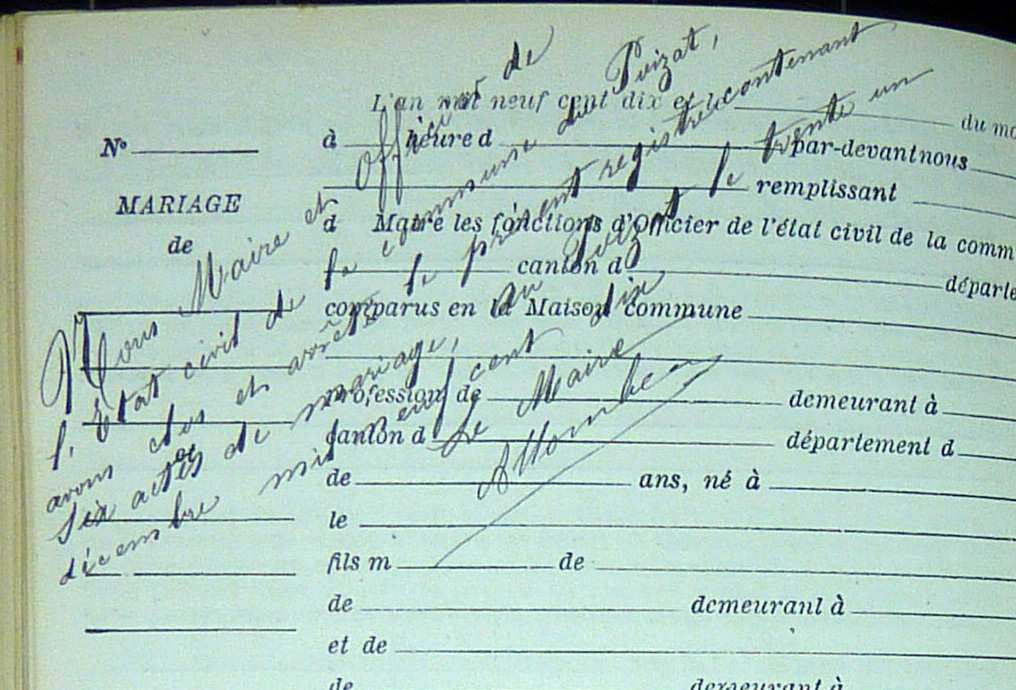 L'an mil neuf cent dix et le du mo
Nº à heure d par-devant nous
remplissant
MARIAGE
de
d Maire les fonctions d'Officier de l'état civil de la comm
canton d départe
comparus en la Maison commune
profession de demeurant à
canton d département d
de ans, né à
le
fils m de
de demeurant à
et de
de demeurant à
Nous Maire et officier de
l'Etat civil de la commune du Poizat,
avons clos et arrêté le présent registre contenant
six actes de mariage, au Poizat le trente un
décembre mil neuf cent dix
Le Maire